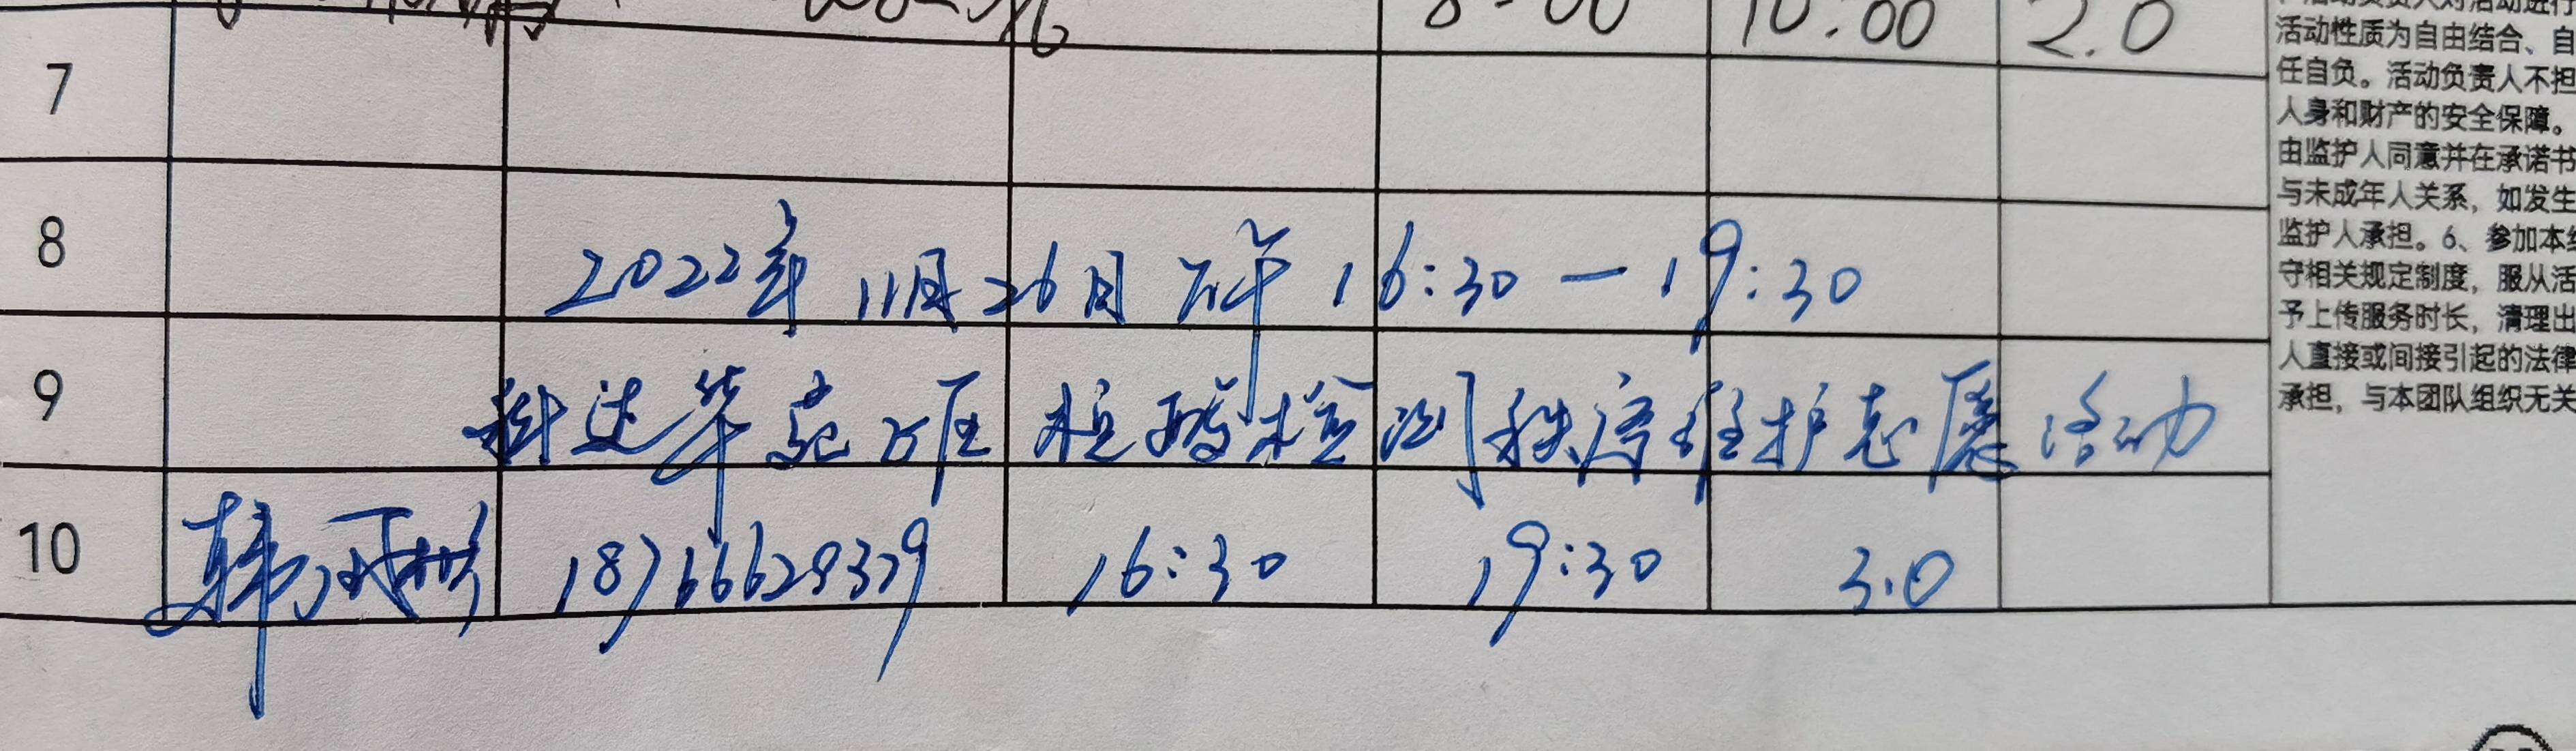 8:00 10:00 2.0
7
8
2022年11月26日下午16:30—19:30
9
科达华苑社区核酸检测秩序维护志愿活动
10 韩 18766629379 16:30 19:30 3.0
活动负责人对活动进行
活动性质为自由结合、自
任自负。活动负责人不担
人身和财产的安全保障。
由监护人同意并在承诺书
与未成年人关系，如发生
监护人承担。6、参加本
守相关规定制度，服从活
予上传服务时长，清理出
人直接或间接引起的法律
承担，与本团队组织无关